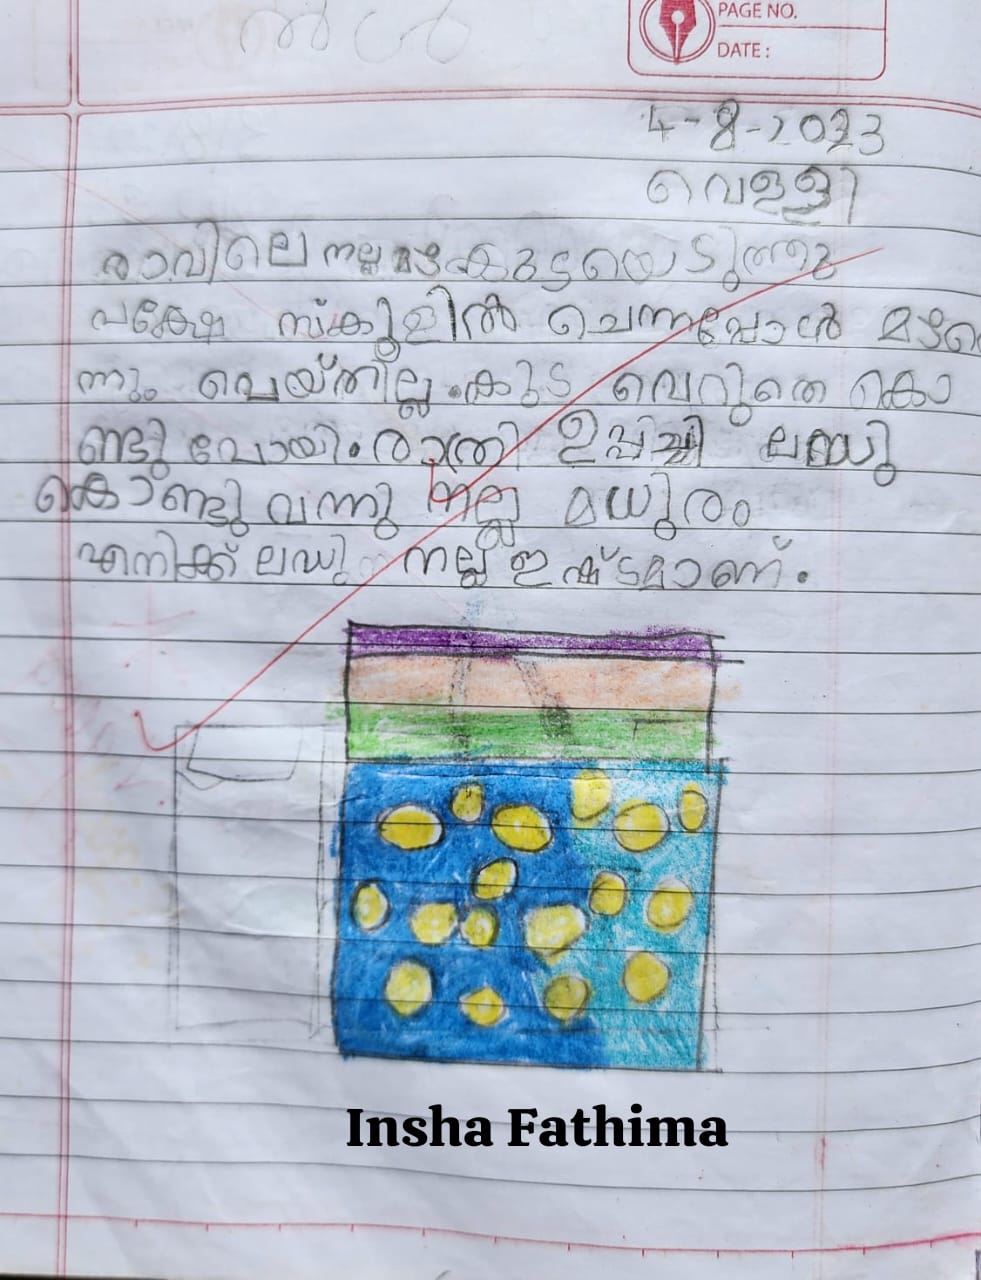 PAGE NO.
DATE :
4-8-2023
വെള്ളി
രാവിലെ നല്ല മഴ കുടയെടുത്തു
പക്ഷേ സ്കൂളിൽ ചെന്നപ്പോൾ മഴയൊ
ന്നും പെയ്തില്ല. കുട വെറുതെ കൊ
ണ്ടു പോയി. രാത്രി ഉപ്പിച്ചി ലഡു
കൊണ്ടു വന്നു നല്ല മധുരം
എനിക്ക് ലഡു നല്ല ഇഷ്ടമാണ്.
Insha Fathima